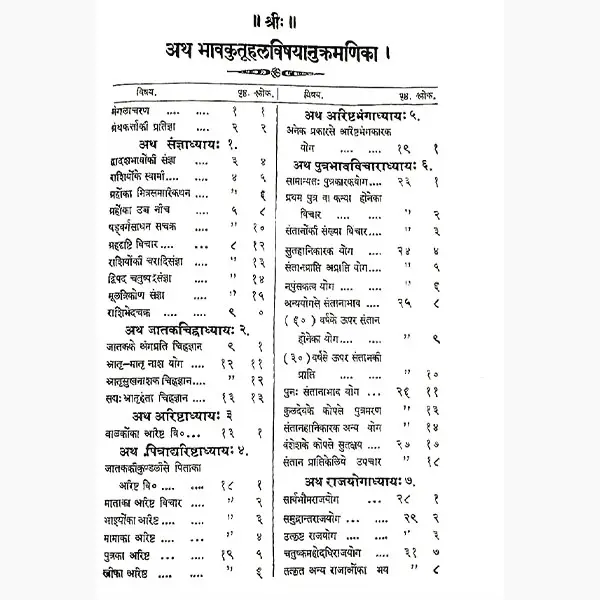 ॥ श्रीः ॥
अथ भावकुतूहलविषयानुक्रमणिका ।
विषय. पृष्ठ. श्लोक.
मंगलाचरण .... .... १ १
ग्रंथकर्त्ताकी प्रतिज्ञा .... २ २
अथ संज्ञाध्यायः १.
द्वादशभावोंकी संज्ञा .... ३ ४
राशियोंके स्वामी .... .... ४ ५
ग्रहोंका मित्रसमारिकथन .... " ६
ग्रहोंका उच्च नीच .... ५ ८
षड्वर्गसाधन सचक्र .... " १०
ग्रहदृष्टि विचार .... .... ८ १२
राशियोंकी चरादिसंज्ञा .... " १३
द्विपद चतुष्पदसंज्ञा .... " १४
मूलत्रिकोण संज्ञा .... " १५
राशिभेदचक्र .... .... ९ ०
अथ जातकचिह्नाध्यायः २.
जातकके अंगप्रति चिह्नज्ञान ९ १
भ्रातृ-मातृ नाश योग .... १२ ११
भ्रातृसुखनाशक चिह्नज्ञान " १२
सद्यः भ्रातृहंता चिह्नज्ञान १३ १३
अथ अरिष्टाध्यायः ३
बालकोंका अरिष्ट वि०... १३ १
अथ पित्राद्यरिष्टाध्यायः ४.
जातककी कुण्डलीसे पिताका
अरिष्ट वि० .... .... १८ १
माताका अरिष्ट विचार .... " २
भाइयोंका अरिष्ट .... " ३
मामाका अरिष्ट .... .... " ४
पुत्रका अरिष्ट .... .... १९ ५
स्त्रीका अरिष्ट .... .... " ६
विषय. पृष्ठ. श्लोक.
अथ अरिष्टभंगाध्यायः ५.
अनेक प्रकारसे अरिष्टभंगकारक
योग .... .... १९ १
अथ पुत्रभावविचाराध्यायः ६.
सामान्यतः पुत्रकारकयोग .... २३ १
प्रथम पुत्र वा कन्या होनेका
विचार .... .... " २
संतानोंकी संख्या विचार .... " ३
सुतहानिकारक योग .... २४ ४
संतानप्राप्ति अप्राप्ति योग .... " ५
नपुंसकत्व योग .... .... " ६
अन्ययोगसे संतानाभाव .... २५ ८
( ६० ) वर्षके ऊपर संतान
होनेका योग .... .... " ९
( ३० ) वर्षसे ऊपर संतानकी
प्राप्ति .... .... " १०
पुनः संतानाभाव योग ... २६ ११
कुलदेवके कोपसे पुत्रमरण " १३
संतानहानिकारक अन्य योग " १४
वंशेशके कोपसे सुतक्षय .... २७ १७
संतान प्राप्तिकेलिये उपचार " १८
अथ राजयोगाध्यायः ७.
सार्वभौमराजयोग .... २८ १
समुद्रान्तराजयोग ... .... २९ २
उत्कृष्ट राजयोग .... ... " ३
चतुष्कमहोदधिराजयोग .... ३१ ७
तत्कृत अन्य राजाओंका भय " ८